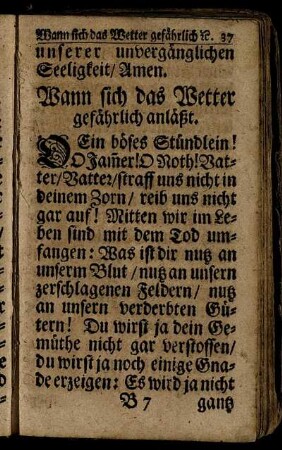 Wann sich das Wetter gefährlich ꝛc. 37
unserer unvergänglichen
Seeligkeit/ Amen.
Wann sich das Wetter
gefährlich anläßt.
O Ein böses Stündlein!
O Jam̃er! O Noth! Vat-
ter/ Vatter/ straff uns nicht in
deinem Zorn/ reib uns nicht
gar auf! Mitten wir im Le-
ben sind mit dem Tod um-
fangen: Was ist dir nutz an
unserm Blut/ nutz an unsern
zerschlagenen Feldern/ nutz
an unsern verderbten Gü-
tern! Du wirst ja dein Ge-
müthe nicht gar verstossen/
du wirst ja noch einige Gna-
de erzeigen: Es wird ja nicht
B 7 gantz